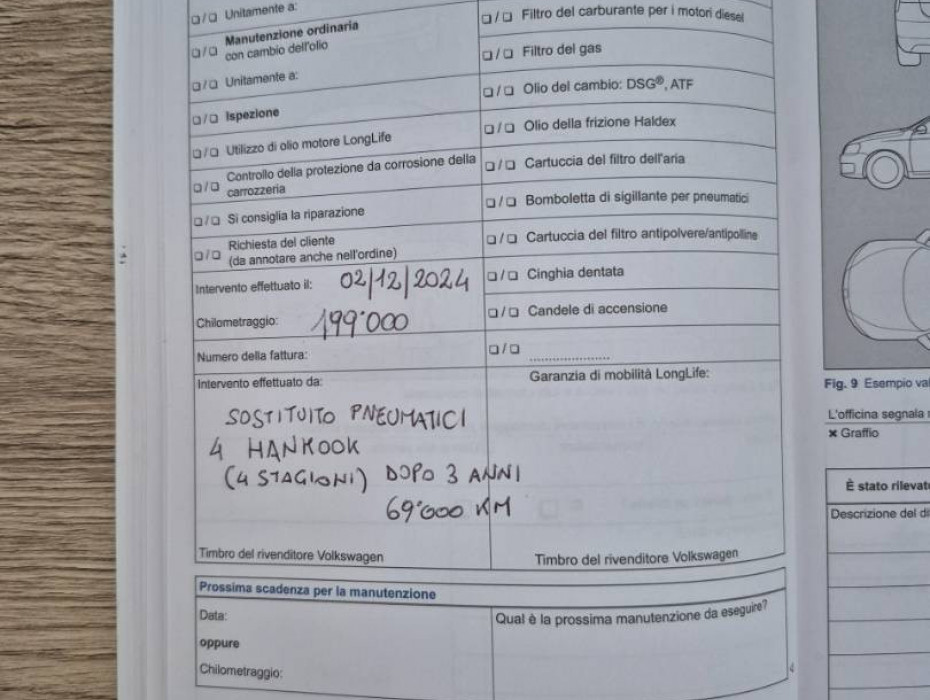 ☐/☐ Unitamente a:
☐/☐ Manutenzione ordinaria
con cambio dell'olio
☐/☐ Unitamente a:
☐/☐ Ispezione
☐/☐ Utilizzo di olio motore LongLife
☐/☐ Controllo della protezione da corrosione della
carrozzeria
☐/☐ Si consiglia la riparazione
☐/☐ Richiesta del cliente
(da annotare anche nell'ordine)
Intervento effettuato il: 02/12/2024
Chilometraggio: 199'000
Numero della fattura:
Intervento effettuato da:
SOSTITUITO PNEUMATICI
4 HANKOOK
(4 STAGIONI) DOPO 3 ANNI
69'000 KM
Timbro del rivenditore Volkswagen
☐/☐ Filtro del carburante per i motori diesel
☐/☐ Filtro del gas
☐/☐ Olio del cambio: DSG®, ATF
☐/☐ Olio della frizione Haldex
☐/☐ Cartuccia del filtro dell'aria
☐/☐ Bomboletta di sigillante per pneumatici
☐/☐ Cartuccia del filtro antipolvere/antipolline
☐/☐ Cinghia dentata
☐/☐ Candele di accensione
☐/☐ ....................
Garanzia di mobilità LongLife:
Timbro del rivenditore Volkswagen
Prossima scadenza per la manutenzione
Data:
oppure
Chilometraggio:
Qual è la prossima manutenzione da eseguire?
Fig. 9 Esempio
L'officina segnala
× Graffio
È stato
Descrizione del